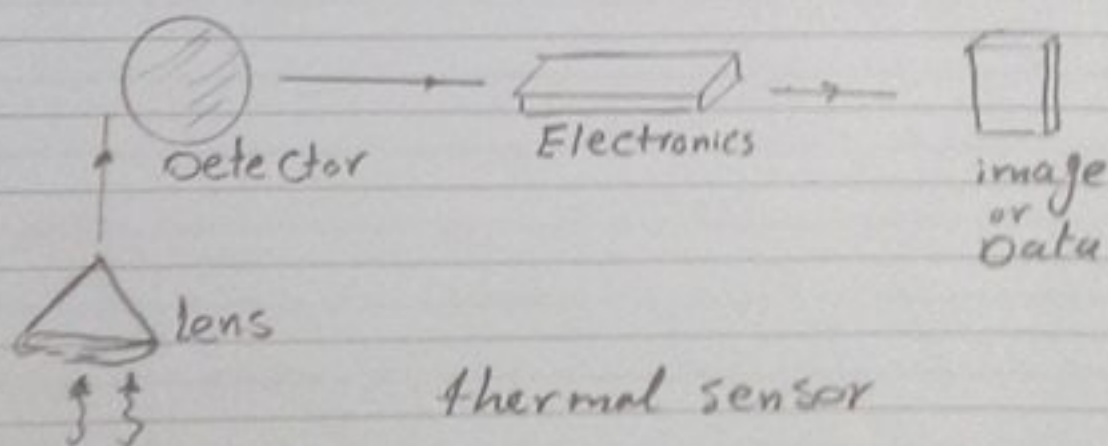 Detector
Electronics
image
or
Data
lens
thermal sensor